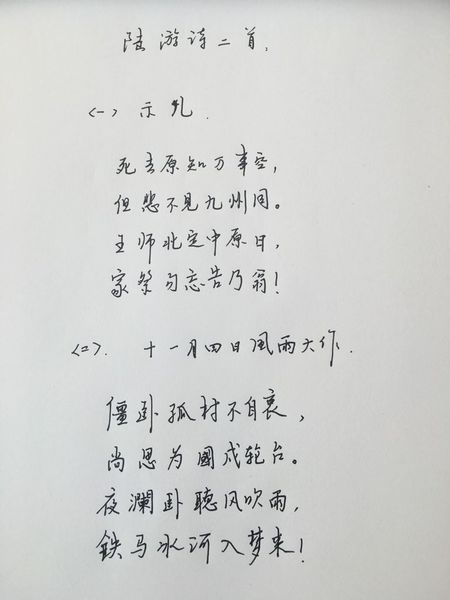 陆游诗二首.
<一> 示儿.
死去原知万事空,
但悲不见九州同。
王师北定中原日,
家祭勿忘告乃翁!
<二>. 十一月四日風雨大作.
僵卧孤村不自哀,
尚思为國戍轮台。
夜瀾卧聽风吹雨,
鉄马冰河入梦来!